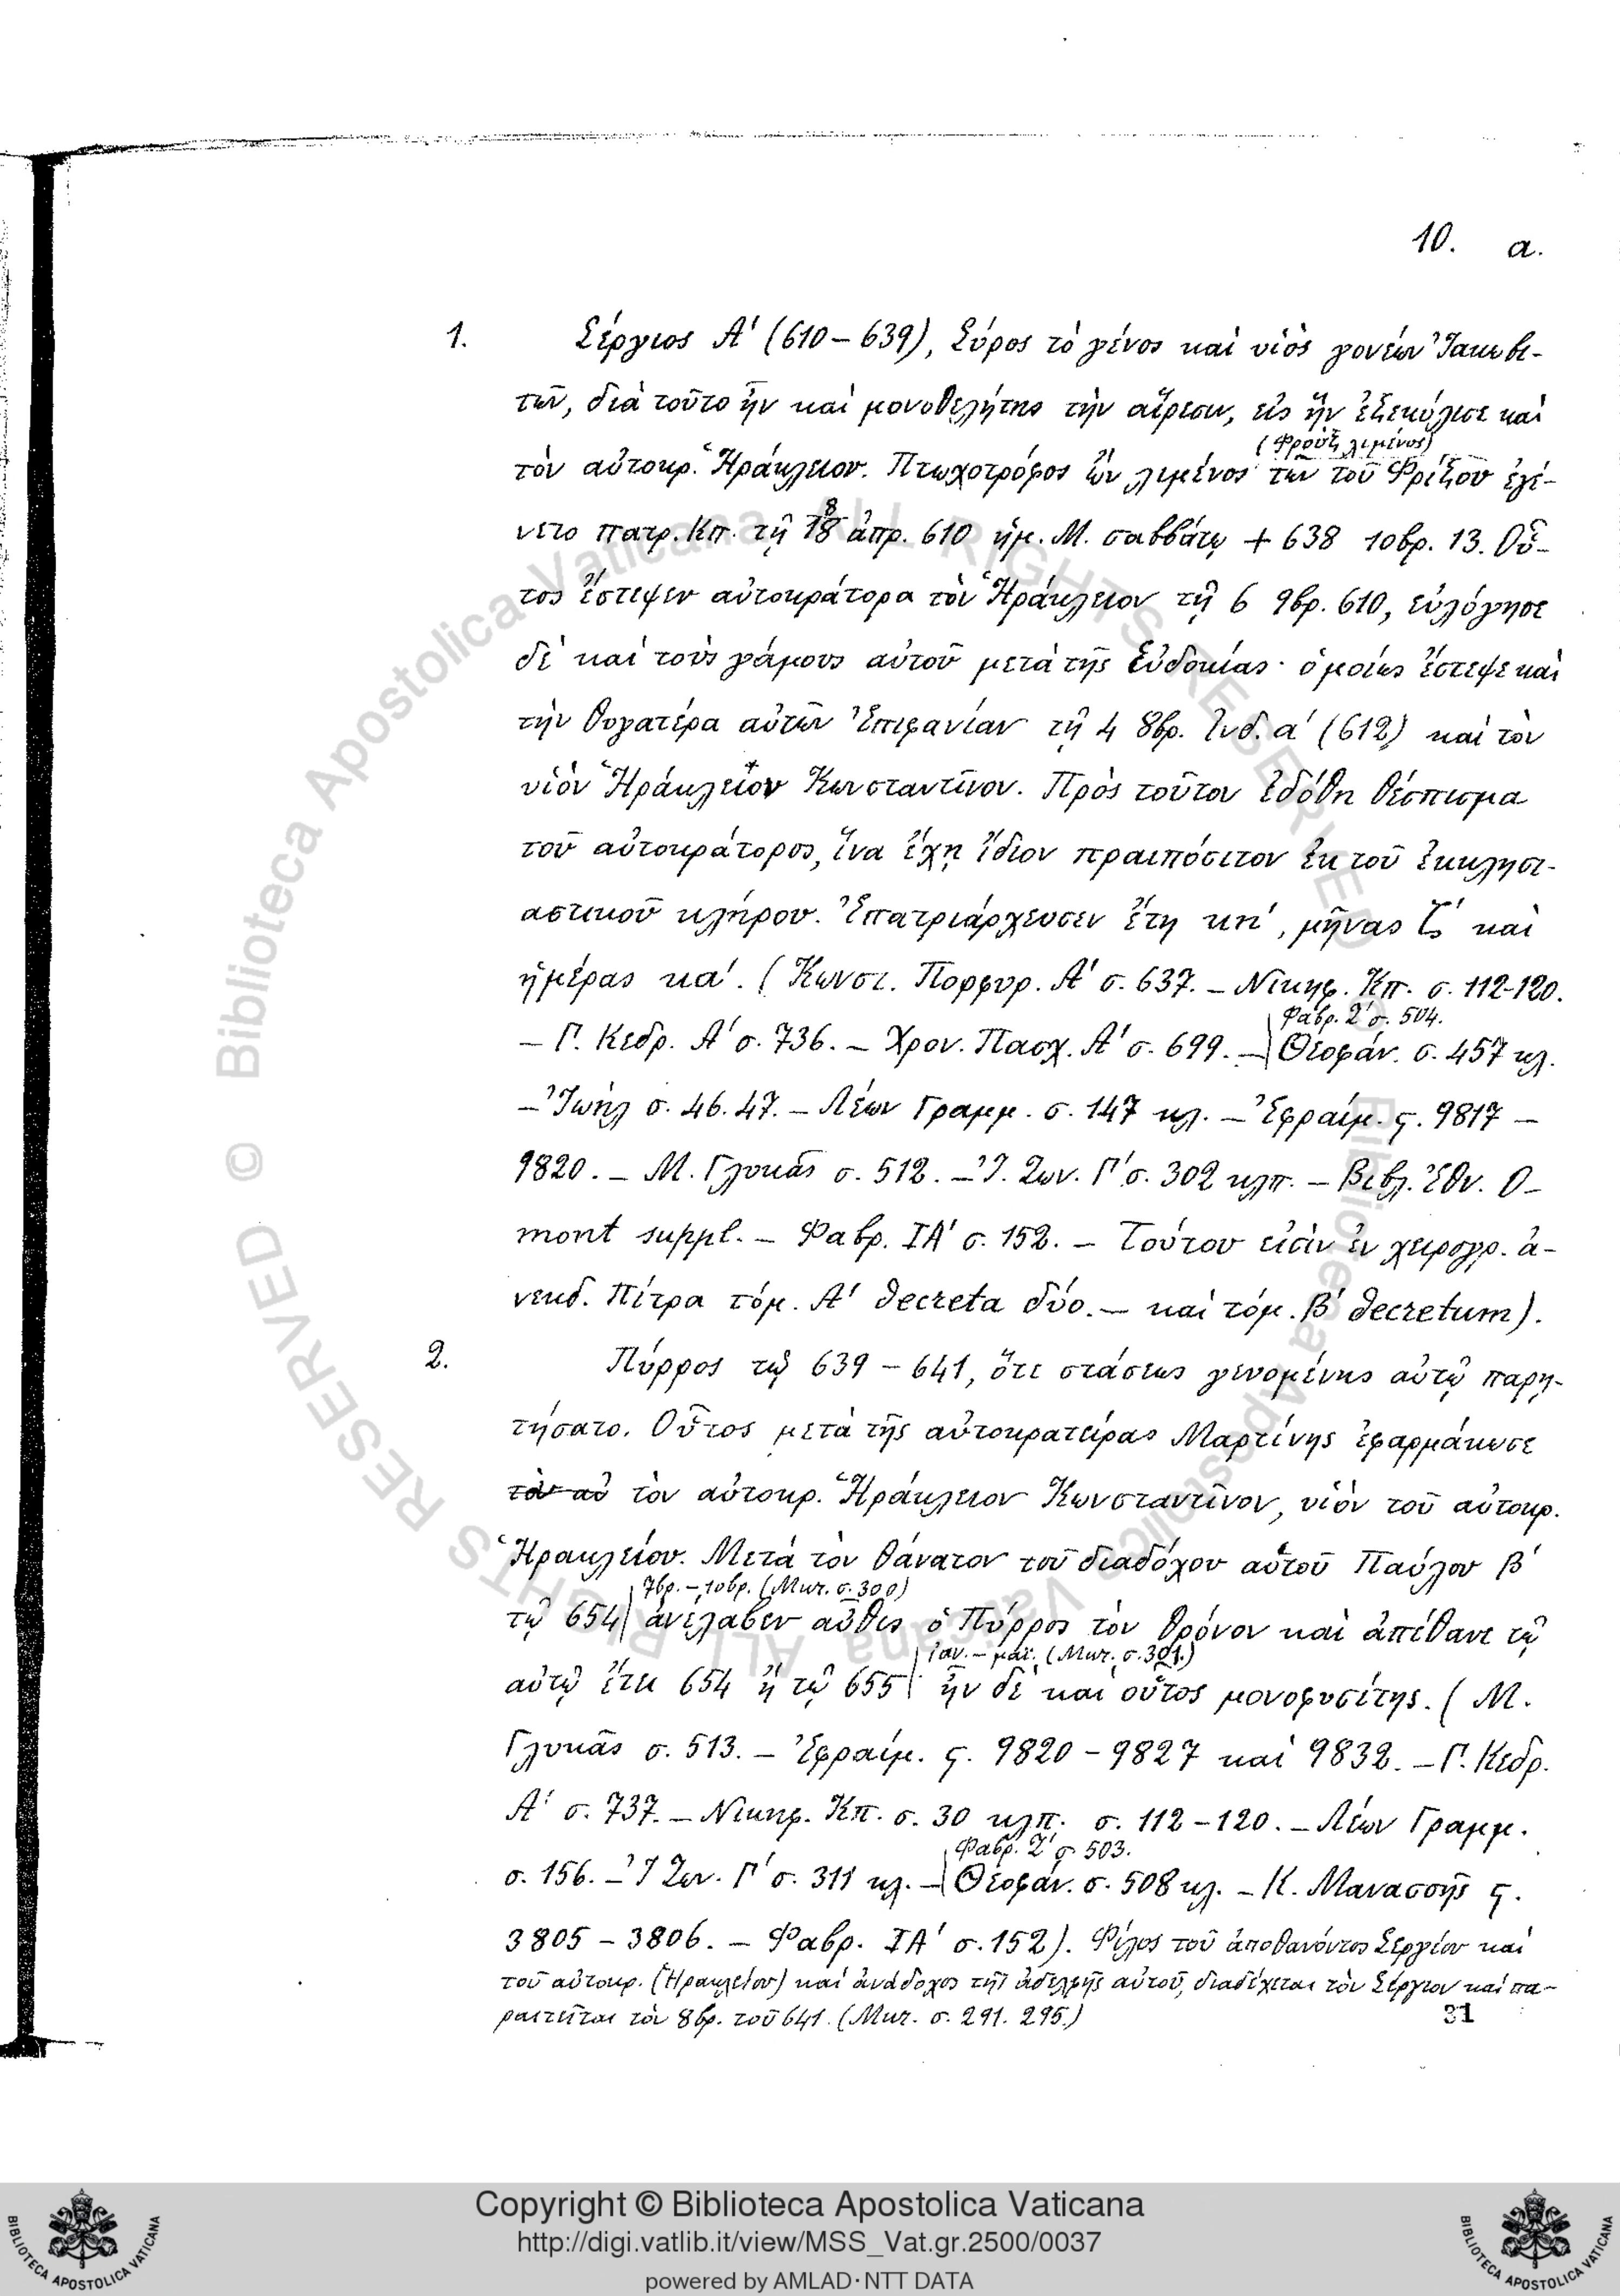 10. α.
1. Σέργιος Α' (610 – 639), Σύρος τὸ γένος καὶ υἱὸς γονέων Ἰακωβι-
τῶν, διὰ τοῦτο ἦν καὶ μονοθελήτης τὴν αἵρεσιν, εἰς ἣν ἐξεκύλισε καὶ
(Φροὺξ λιμένος)
τὸν αὐτοκρ. Ἡράκλειον. Πτωχοτρόφος ὢν λιμένος των τοῦ Φρίξου ἐγέ-
νετο πατρ. Κπ. τῇ 18 ἀπρ. 610 ἡμ. Μ. σαββάτῳ + 638 10βρ. 13. Οὗ-
τος ἔστεψεν αὐτοκράτορα τὸν Ἡράκλειον τῇ 6 9βρ. 610, εὐλόγησε
δὲ καὶ τοὺς γάμους αὐτοῦ μετὰ τῆς Εὐδοκίας· ὁμοίως ἔστεψε καὶ
τὴν θυγατέρα αὐτῶν Ἐπιφανίαν τῇ 4 8βρ. Ἰνδ. α' (612) καὶ τὸν
υἱὸν Ἡράκλειον Κωνσταντῖνον. Πρὸς τοῦτον ἐδόθη θέσπισμα
τοῦ αὐτοκράτορος, ἵνα ἔχῃ ἴδιον πραιπόσιτον ἐκ τοῦ ἐκκλησι-
αστικοῦ κλήρου. Ἐπατριάρχευσεν ἔτη κη', μῆνας ζ' καὶ
ἡμέρας κα'. (Κωνστ. Πορφυρ. Α' σ. 637. – Νικηφ. Κπ. σ. 112-120.
Φαβρ. Ζ' σ. 504.
– Γ. Κεδρ. Α' σ. 736. – Χρον. Πασχ. Α' σ. 699. – Θεοφάν. σ. 457 κλ.
– Ἰωὴλ σ. 46. 47. – Λέων Γραμμ. σ. 147 κλ. – Ἐφραίμ. ς. 9817 –
9820. – Μ. Γλυκᾶς σ. 512. – Ἰ. Ζων. Γ' σ. 302 κλπ. – Βιβλ. Ἐθν. O-
mont suppl. – Φαβρ. ΙΑ' σ. 152. – Τούτου εἰσὶν ἐν χειρογρ. ἀ-
νεκδ. Πίτρα τόμ. Α' decreta δύο. – καὶ τόμ. Β' decretum).
2. Πύρρος τῷ 639 – 641, ὅτε στάσεως γενομένης αὐτῷ παρῃ-
τήσατο. Οὗτος μετὰ τῆς αὐτοκρατείρας Μαρτίνης ἐφαρμάκωσε
τὸν αὐ τὸν αὐτοκρ. Ἡράκλειον Κωνσταντῖνον, υἱὸν τοῦ αὐτοκρ.
Ἡρακλείου. Μετὰ τὸν θάνατον τοῦ διαδόχου αὐτοῦ Παύλου Β'
7βρ. – 10βρ. (Μυτ. σ. 300)
τῷ 654 ἀνέλαβεν αὖθις ὁ Πύρρος τὸν θρόνον καὶ ἀπέθανε τῷ
ἰαν. – μαΐ. (Μυτ. σ. 301.)
αὐτῷ ἔτει 654 ἢ τῷ 655 ἦν δὲ καὶ οὗτος μονοφυσίτης. (Μ.
Γλυκᾶς σ. 513. – Ἐφραίμ. ς. 9820 – 9827 καὶ 9832. – Γ. Κεδρ.
Α' σ. 737. – Νικηφ. Κπ. σ. 30 κλπ. σ. 112 – 120. – Λέων Γραμμ.
Φαβρ. Ζ' σ 503.
σ. 156. – Ἰ Ζων. Γ' σ. 311 κλ. – Θεοφάν. σ. 508 κλ. – Κ. Μανασσῆς ς.
3805 – 3806. – Φαβρ. ΙΑ' σ. 152). Φίλος τοῦ ἀποθανόντος Σεργίου καὶ
τοῦ αὐτοκρ. (Ἡρακλείου) καὶ ἀνάδοχος τῆς ἀδελφῆς αὐτοῦ, διαδέχεται τὸν Σέργιον καὶ πα-
ραιτεῖται τὸν 8βρ. τοῦ 641. (Μυτ. σ. 291. 295.)
31
© Biblioteca Apostolica Vaticana ALL RIGHTS RESERVED
Copyright © Biblioteca Apostolica Vaticana
http://digi.vatlib.it/view/MSS_Vat.gr.2500/0037
powered by AMLAD·NTT DATA
BIBLIOTECA APOSTOLICA VATICANA
BIBLIOTECA APOSTOLICA VATICANA